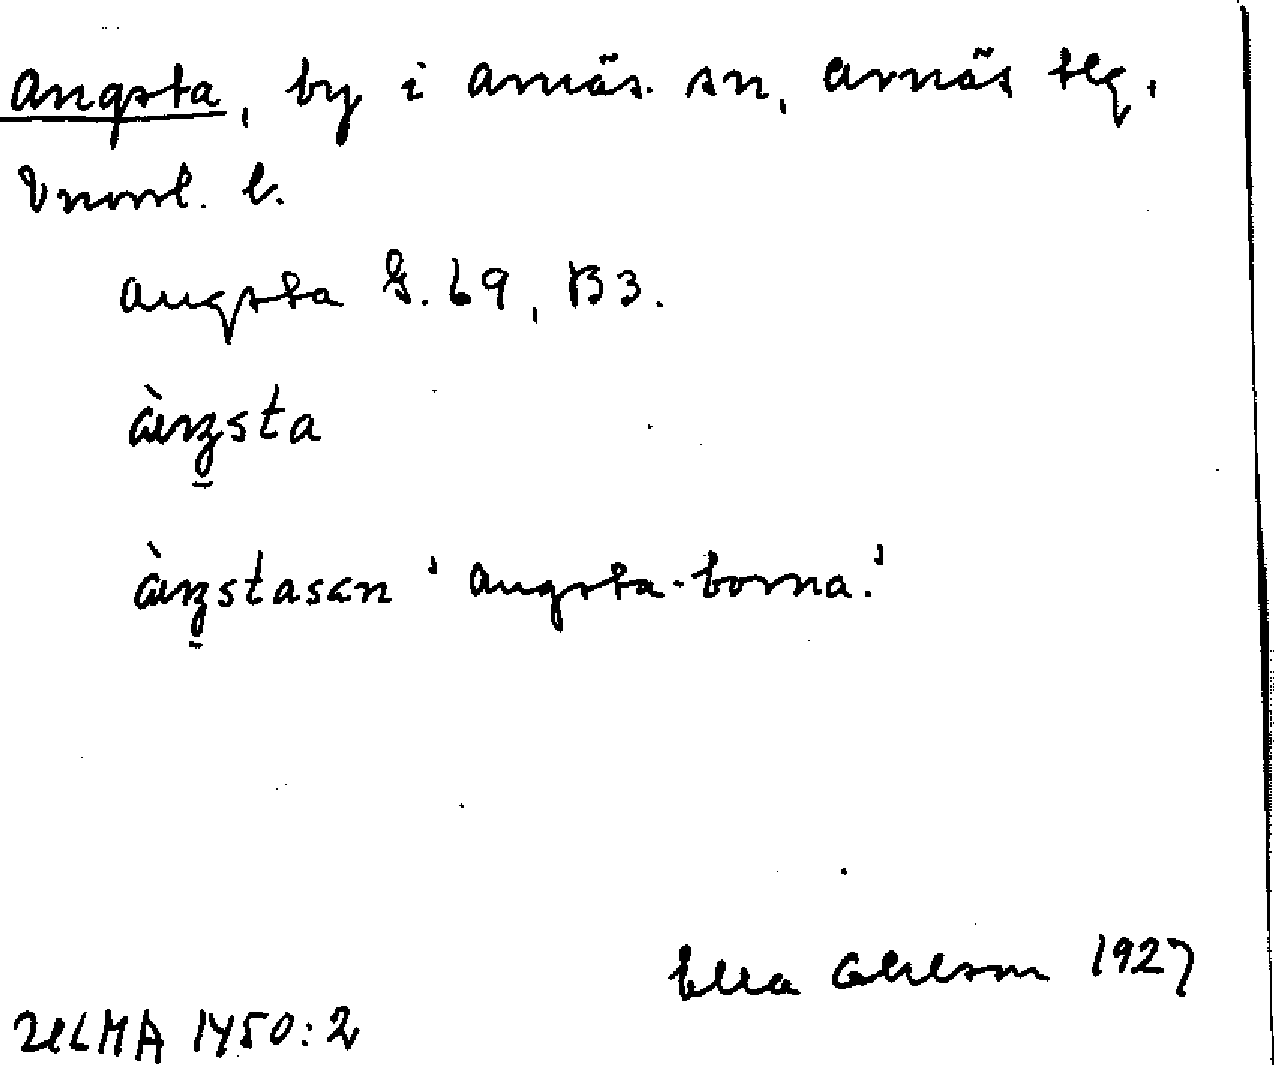 Angsta, by i Arnäs sn, Arnäs tlg.
Vnorrl. l.
Angsta G. 69, B3.
àŋsta
àŋstasan 'Angsta-borna.'
Ella Ohlson 1927
ULMA 1450:2